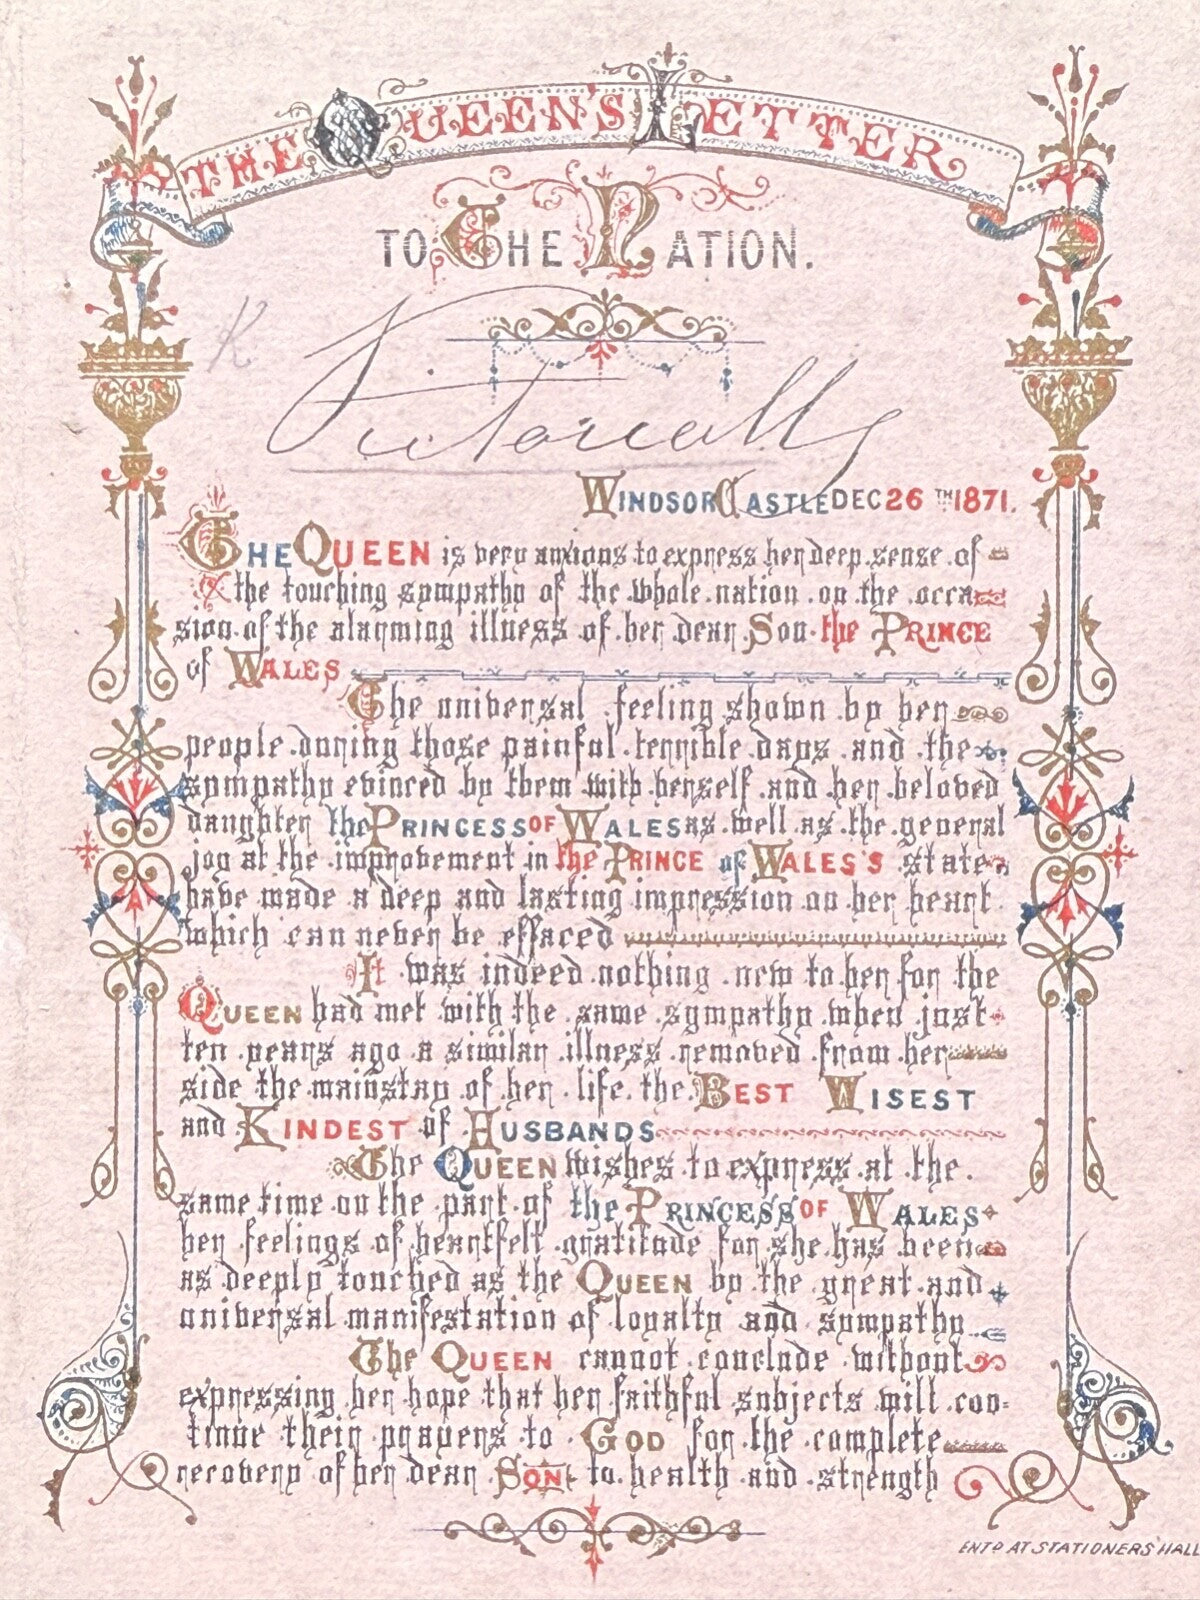 THE QUEEN'S LETTER
TO THE NATION.
K.
Victoria
WINDSOR CASTLE DEC 26TH 1871.
THE QUEEN is very anxious to express her deep sense of
the touching sympathy of the whole nation on the occa
sion of the alarming illness of her dear Son the PRINCE
of WALES
The universal feeling shown by her
people during those painful terrible days and the
sympathy evinced by them with herself and her beloved
daughter the PRINCESS OF WALES as well as the general
joy at the improvement in the PRINCE of WALES'S state
have made a deep and lasting impression on her heart
which can never be effaced
It was indeed nothing new to her for the
QUEEN had met with the same sympathy when just
ten years ago a similar illness removed from her
side the mainstay of her life the BEST WISEST
and KINDEST of HUSBANDS
The QUEEN wishes to express at the
same time on the part of the PRINCESS OF WALES
her feelings of heartfelt gratitude for she has been
as deeply touched as the QUEEN by the great and
universal manifestation of loyalty and sympathy
The QUEEN cannot conclude without
expressing her hope that her faithful subjects will con=
tinue their prayers to GOD for the complete
recovery of her dear SON to health and strength
ENTD AT STATIONERS' HALL